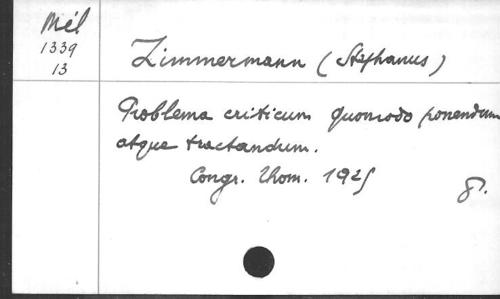 Mél
1339
13
Zimmermann (Stephanus)
Problema criticum quomodo ponendum
atque tractandum.
Congr. Thom. 1925
8º.